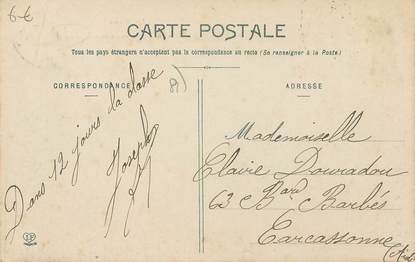 6€
CARTE POSTALE
Tous les pays étrangers n'acceptent pas la correspondance au recto (Se renseigner à la Poste)
CORRESPONDANCE
Dans 12 jours la classe
Joseph
ADRESSE
Mademoiselle
Claire Douradou
63 Bard Barbés
Carcassonne
(Aude